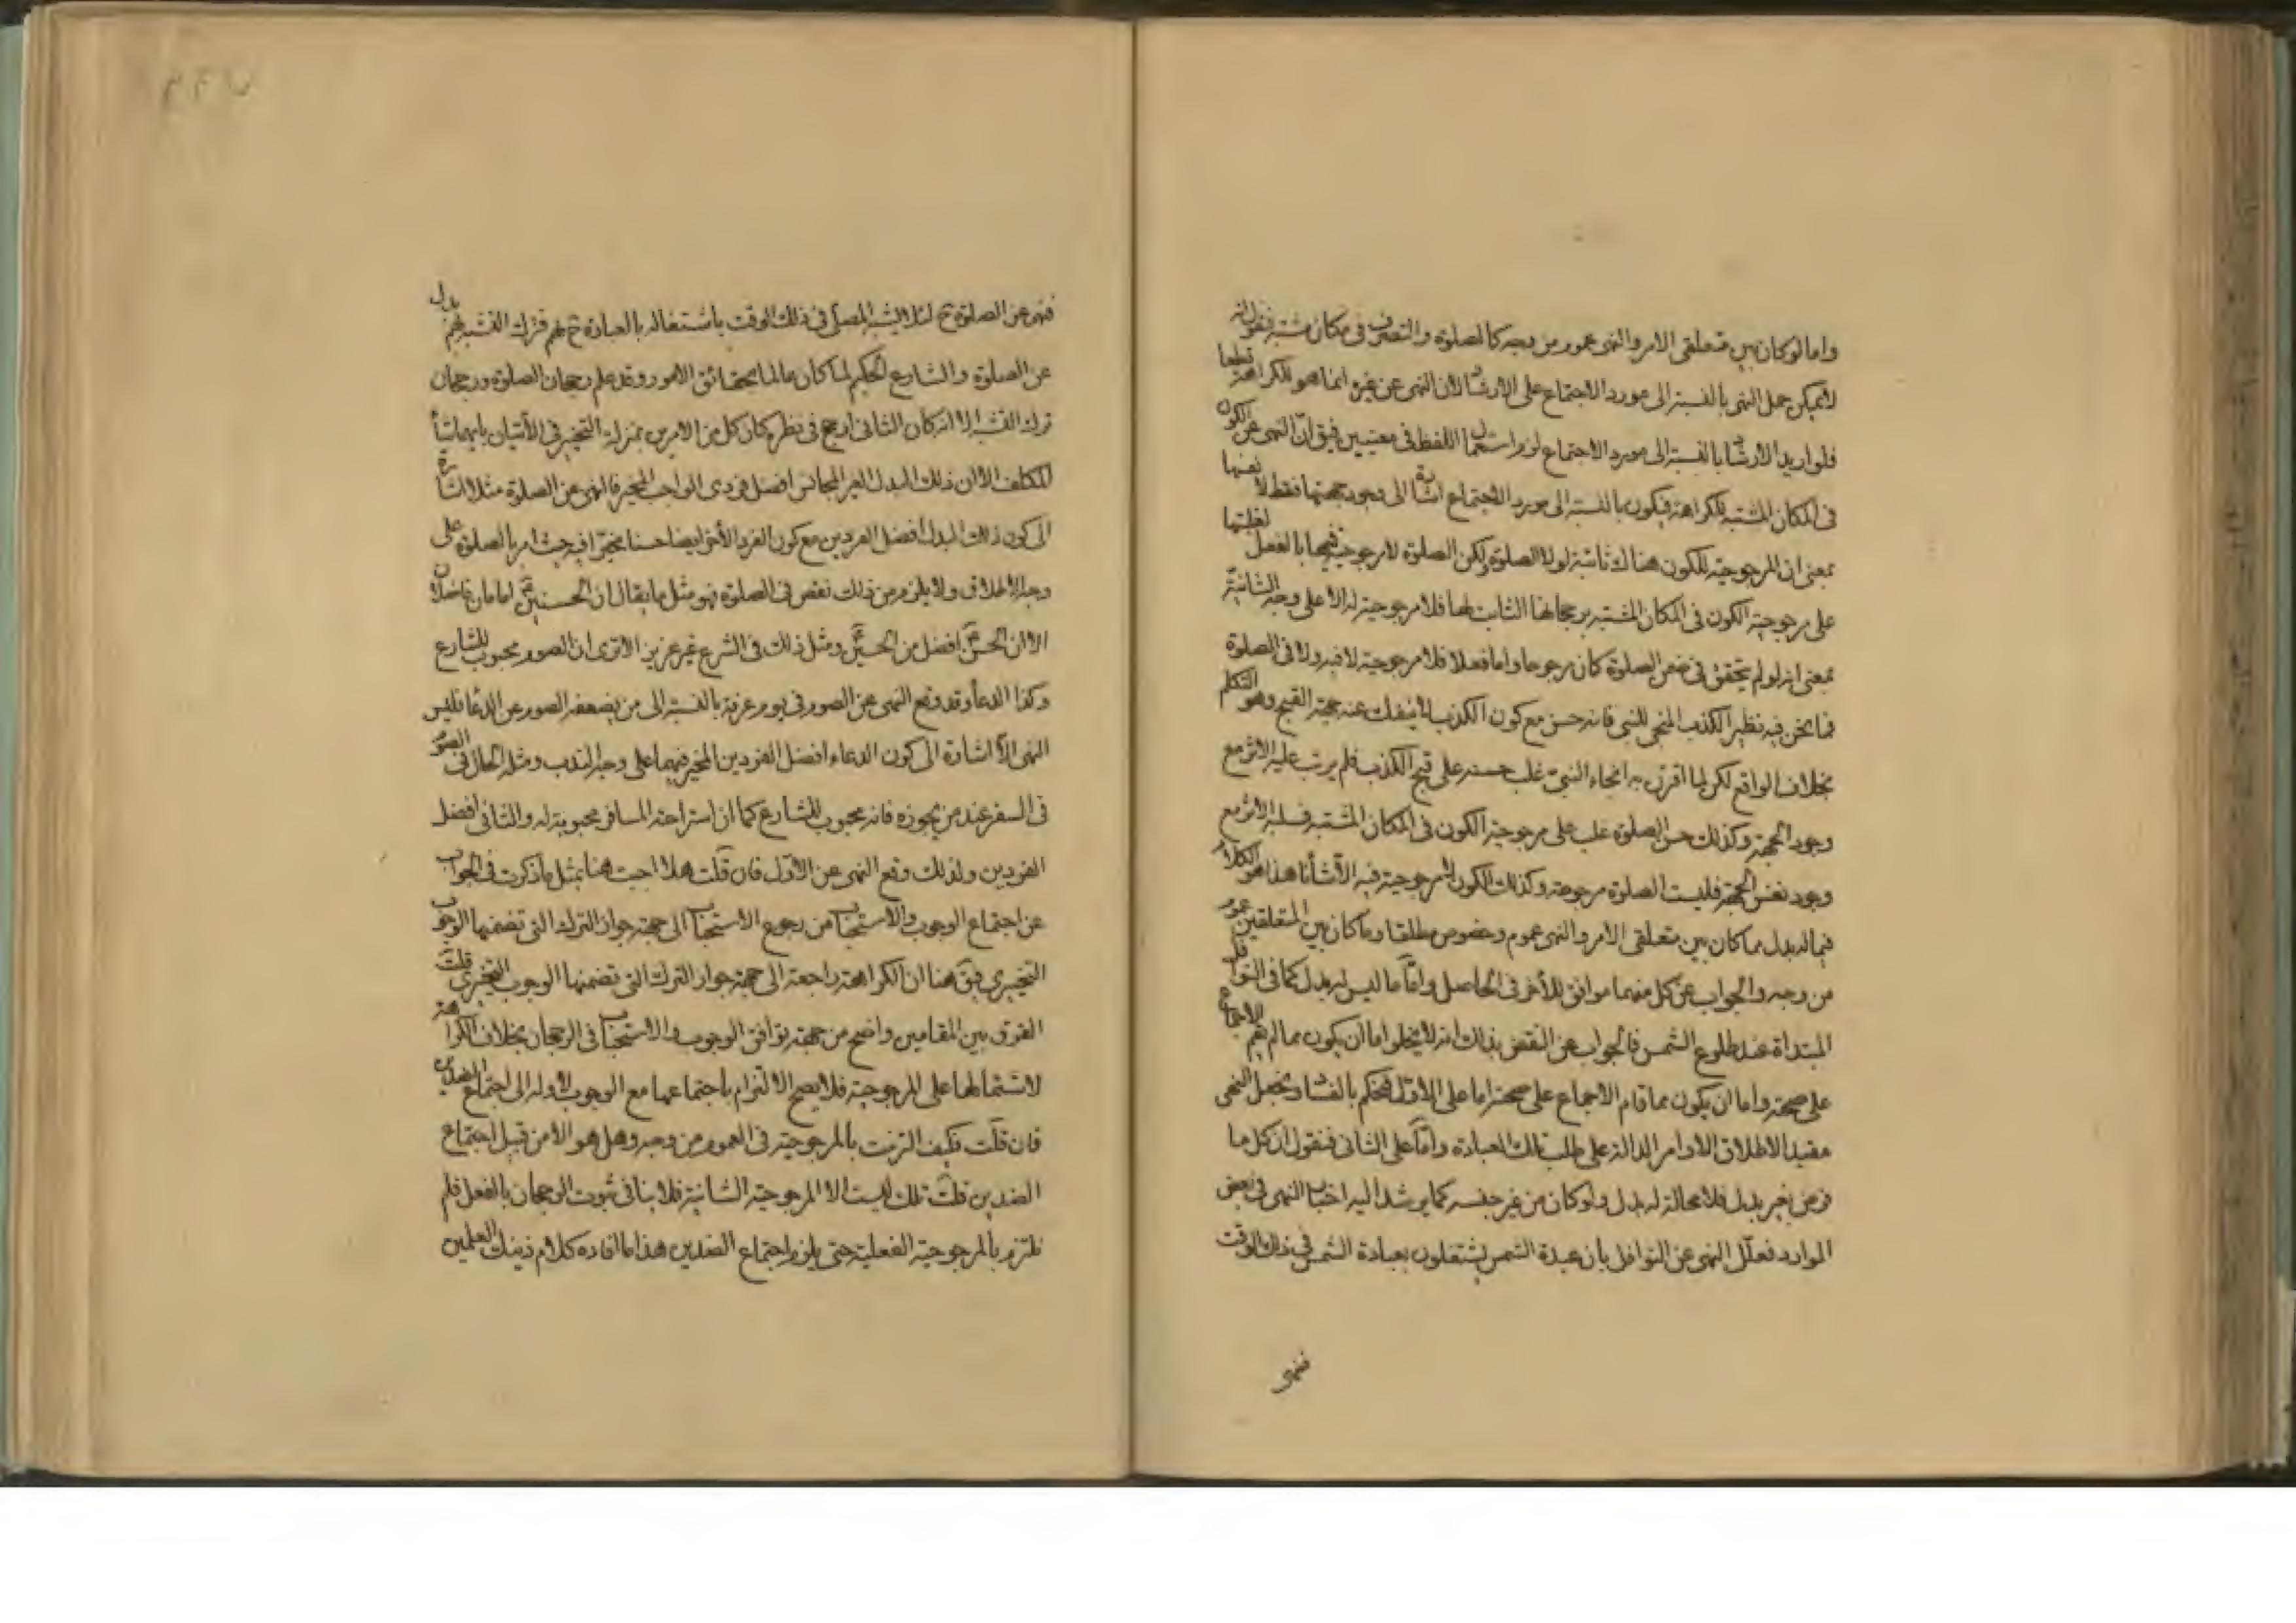 واما لو كان بين متعلقى الامر والنهى عموم من وجه كالصلوة والتصرف فى مكان مشتبه فنقول انه
لا يمكن حمل النهى بالنسبة الى مورد الاجتماع على الارشاد لان النهى عن غيره انما هو للكراهة قطعا
فلو اريد الارشاد بالنسبة الى مورد الاجتماع لزم استعمال اللفظ فى معنيين فيق ان النهى عن الكون
فى المكان المشتبه للكراهة فيكون بالنسبة الى مورد الاجتماع اشارة الى وجود جهتها فقط لا نفسها
بمعنى ان المرجوحية للكون هناك ثابتة لولا الصلوة ولكن الصلوة لا مرجوحية فيها بالفعل لغلبتها
على مرجوحية الكون فى المكان المشتبه برجحانها الثابت لها فلا مرجوحية له الا على وجه الشانية
بمعنى انه لو لم يتحقق فى ضمن الصلوة كان مرجوحا واما فعلا فلا مرجوحية لا فيه ولا فى الصلوة
فما نحن فيه نظير الكذب المنجى للنبى فانه حسن مع كون الكذب لا ينفك عنه جهة القبح وهو التكلم
بخلاف الواقع لكن لما اقترن به انجاء النبى غلب حسنه على قبح الكذب فلم يرتب عليه الاثر مع
وجود الجهة وكذلك حسن الصلوة غلب على مرجوحية الكون فى المكان المشتبه فسلبه الاثر مع
وجود نفس الجهة فليست الصلوة مرجوحة وكذلك الكون لا مرجوحية فيه الا شأنا هذا هو الكلام
فيما له بدل مما كان بين متعلقى الامر والنهى عموم وخصوص مطلقا وما كان بين المتعلقين عموم
من وجه والجواب عن كل منهما موافق للأخر فى الحاصل واما ما ليس له بدل كما فى النوافل
المبتدأة عند طلوع الشمس فالجواب عن النقض بذلك انه لا يخلو اما ان يكون مما لم يقم الاجماع
على صحته واما ان يكون مما قام الاجماع على صحته اما على الاول فنحكم بالفساد ونجعل النهى
مقيدا لاطلاق الاوامر الدالة على طلب تلك العبادة واما على الثانى فنقول ان كل ما
فرض بغير بدل فلا محالة له بدل ولو كان من غير جنسه كما يرشد اليه اخبار النهى فى بعض
الموارد فعلل النهى عن النوافل بأن عبدة الشمس يشتغلون بعبادة الشمس فى ذلك الوقت
فنهى
فنهى عن الصلوة ح لئلا يتشبه المصلى فى ذلك الوقت باشتغاله بالعبادة ح بهم فترك التشبه بهم بدل
عن الصلوة والشارع الحكيم لما كان عالما بحقائق الامور وقد علم رجحان الصلوة ورجحان
ترك التشبه الا انه كان الثانى ارجح فى نظره كان كل من الامرين بمنزلة التخيير فى الأتيان بايهما شأ
المكلف الا ان ذلك البدل الغير المجانس افضل فردى الواجب المخير فالنهى عن الصلوة مثلا اشارة
الى كون ذلك البدل افضل الفردين مع كون الفرد الأخر ايضا حسنا مخيرا فيه حيث امر بالصلوة على
وجه الاطلاق ولا يلزم من ذلك نقص فى الصلوة فهو مثل ما يقال ان الحسنين ع امامان فاضلان
الا ان الحسن ع افضل من الحسين ع ومثل ذلك فى الشرع غير عزيز الا ترى ان الصوم محبوب للشارع
وكذا الدعاء وقد وقع النهى عن الصوم فى يوم عرفة بالنسبة الى من يضعفه الصوم عن الدعا فليس
النهى الا اشارة الى كون الدعاء افضل الفردين المخير فيهما على وجه الندب ومثله الحال فى الصوم
فى السفر عند من يجوزه فانه محبوب للشارع كما ان استراحة المسافر محبوبة له والثانى افضل
الفردين ولذلك وقع النهى عن الاول فان قلت هلا اجبت هنا بمثل ما ذكرت فى الجواب
عن اجتماع الوجوب والاستحباب من رجوع الاستحباب الى جهة جواز الترك التى تضمنها الوجوب
التخييرى فيق هنا ان الكراهة راجعة الى جهة جواز الترك التى تضمنها الوجوب التخييرى قلت
الفرق بين المقامين واضح من جهة توافق الوجوب والاستحباب فى الرجحان بخلاف الكراهة
لاشتمالها على المرجوحية فلا يصح الالتزام باجتماعها مع الوجوب لأوله الى اجتماع الضدين
فان قلت فكيف التزمت بالمرجوحية فى العموم من وجه وهل هو الا من قبيل اجتماع
الضدين قلت تلك ليست الا المرجوحية الشانية فلا ينافى ثبوت الرجحان بالفعل فلم
نلتزم بالمرجوحية الفعلية حتى يلزم اجتماع الضدين هذا ما افاده كلام ذينك العلمين